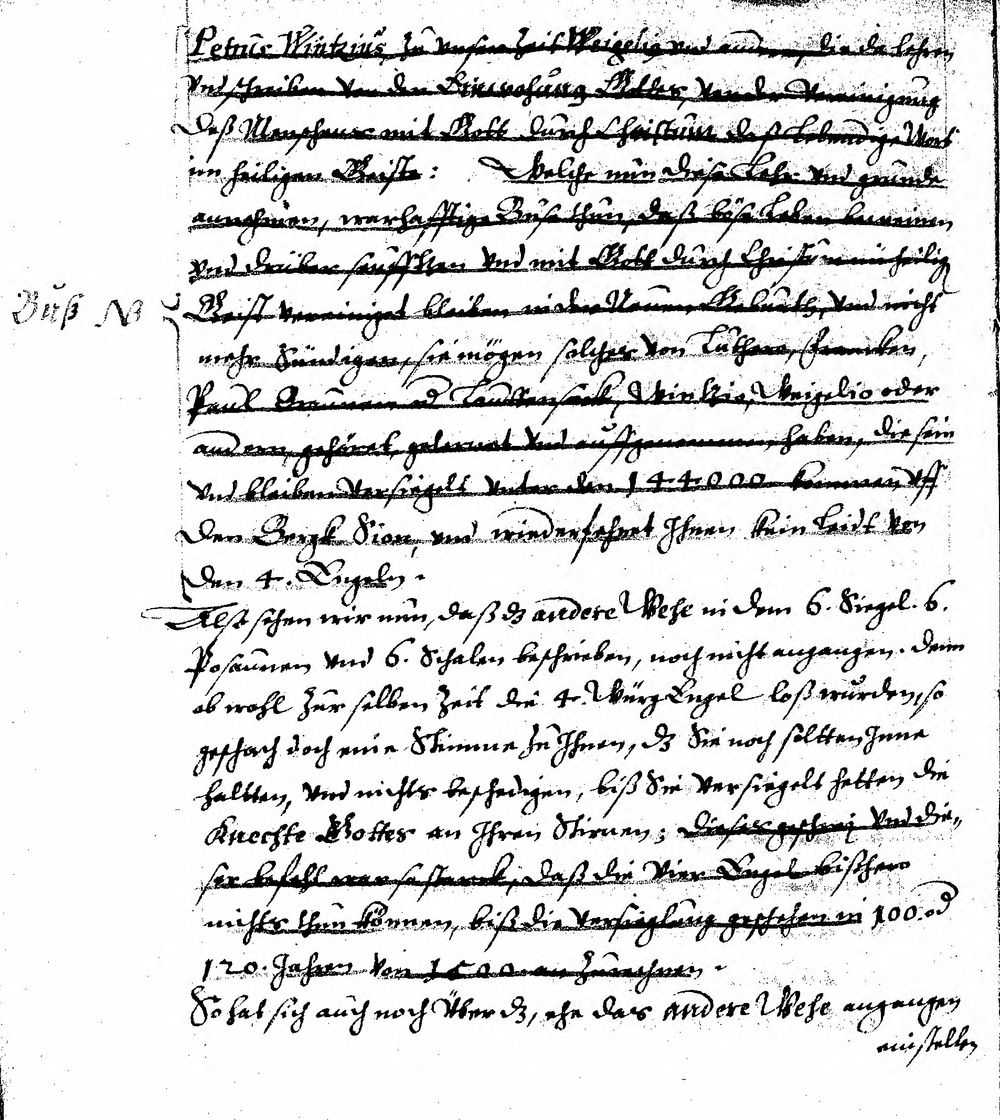 Petrus Wintzius, zu unser Zeit Weigelig und andere, die da lehren
und schreiben von der Einwohung Gottes, von der Vereinigung
deß Menschens mit Gott durch Christum deß lebendige Wort
im heiligen Geiste: Welche nun diese Lehr und grunde
annehmen, warhafftige Buse thun, daß böse Leben beweinen
und drüber seufftzen und mit Gott durch Christum im heilig
Buß NB Geist vereiniget bleiben in der Neuen Geburth, und nicht
mehr Sündigen, sie mögen solches von Luthero, Francken,
Paul Braunen od Lauttensack, Wintzio, Weigelio oder
andern, gehöret, gelernet und auffgenommen, haben, die sein
und bleiben versiegelt unter den 144000 kommen uff
den Bergk Sion, und wiederfehret Ihnen kein Leidt von
den 4. Engeln.
Also sehen wir nun, daß dz andere Wehe in dem 6. Siegel. 6.
Posaunen und 6. Schalen beschrieben, noch nicht angangen. Denn
ob wohl zur selben Zeit die 4. Würg Engel loß wurden, so
geschach doch eine Stimme zu Ihnen, dz Sie noch soltten Inne
haltten, und nichts beschedigen, biß Sie versiegelt hetten die
Knechte Gottes an Ihren Stirnen; dieses geschrej und die-
ser befehl war so starck, daß die Vier Engel bißhero
nichts thun können, biß die versieglung geschehen in 100. od
120. Jahren von 1500 an zurechnen.
So hat sich auch noch Über dz, ehe das andere Wehe angangen
einstellen